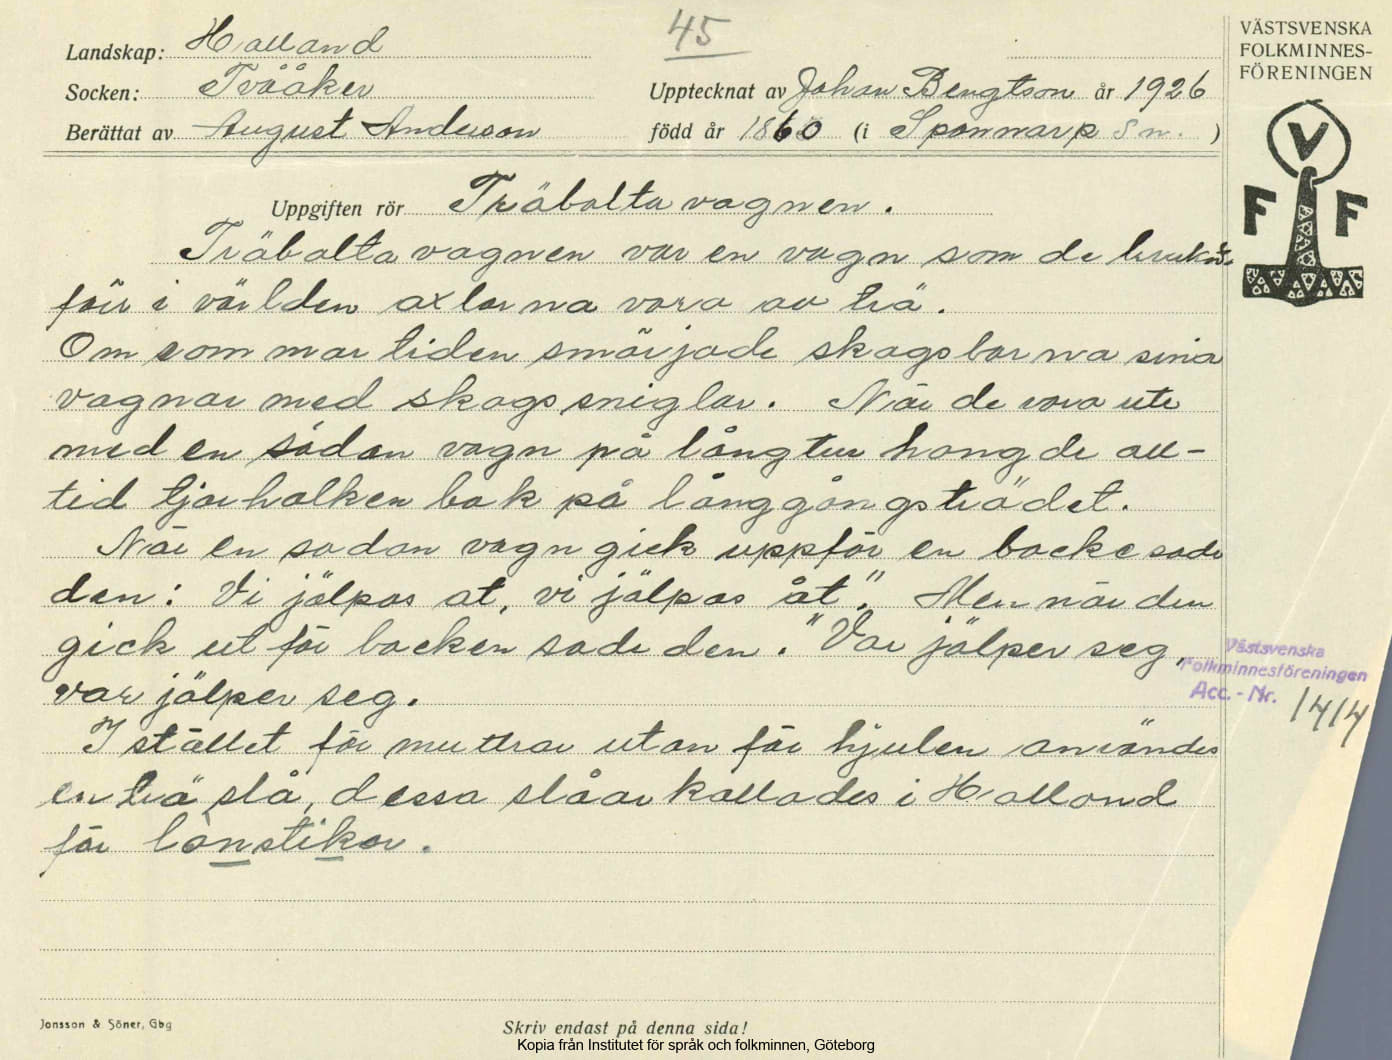 45
Landskap: Halland
Socken: Tvååker
Upptecknat av Johan Bengtson år 1926
Berättat av August Anderson
född år 1860 (i Sponnarp sn. )
Uppgiften rör Träbaltavagnen.
Träbaltavagnen var en vagn som de brukade
förr i världen axlarna vora av trä.
Om sommartiden smörjade skogsborna sina
vagnar med skogssniglar. När de vora ute
med en sådan vagn på långtur hängde all-
tid tjärholken bak på långgångsträdet.
När en sadan vagn gick uppför en backe sade
den: Vi jälpas at, vi jälpas åt". Men när den
gick utför backen sade den. "Var jälper seg,
var jälper seg.
I stället för muttrar utan för hjulen användes
en trä slå, dessa slåar kallades i Halland
för lònstikor.
VÄSTSVENSKA
FOLKMINNES-
FÖRENINGEN
V
F F
Västsvenska
Folkminnesföreningen
Acc.-Nr. 1414
Jonsson & Söner, Gbg
Skriv endast på denna sida!
Kopia från Institutet för språk och folkminnen, Göteborg